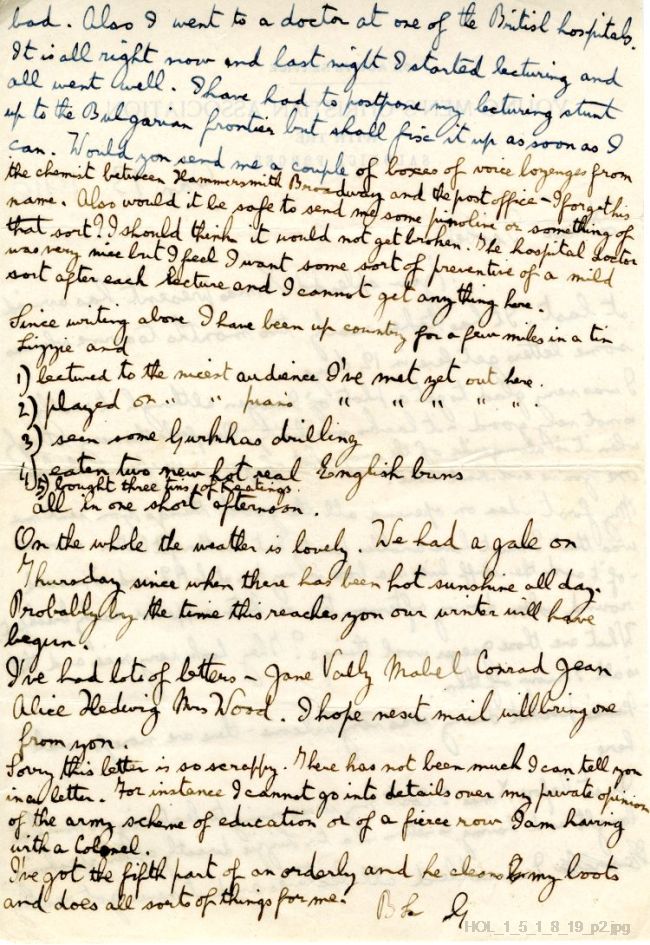 bad. Also I went to a doctor at one of the British hospitals.
It is all right now and last night I started lecturing and
all went well. I have had to postpone my lecturing stunt
up to the Bulgarian frontier but shall fix it up as soon as I
can. Would you send me a couple of boxes of voice lozenges from
the chemist between Hammersmith Broadway and the post office – I forget his
name. Also would it be safe to send me some pinoline or something of
that sort? I should think it would not get broken. The hospital doctor
was very nice but I feel I want some sort of preventive of a mild
sort after each lecture and I cannot get anything here.
Since writing above I have been up country for a few miles in a tin
Lizzie and
1) lectured to the nicest audience I've met yet out here.
2) played on " " piano " " " " " ".
3) seen some Gurkhas drilling
4) eaten two new hot real English buns
5) bought three tins of Keatings.
all in one short afternoon.
On the whole the weather is lovely. We had a gale on
Thursday since when there has been hot sunshine all day.
Probably by the time this reaches you our winter will have
begun.
I've had lots of letters – Jane Vally Mabel Conrad Jean
Alice Hedwig Mrs Wood. I hope next mail will bring one
from you.
Sorry this letter is so scrappy. There has not been much I can tell you
in a letter. For instance I cannot go into details over my private opinion
of the army scheme of education or of a fierce row I am having
with a Colonel.
I've got the fifth part of an orderly and he cleans my boots
and does all sorts of things for me.
G
HOL_1_5_1_8_19_p2.jpg